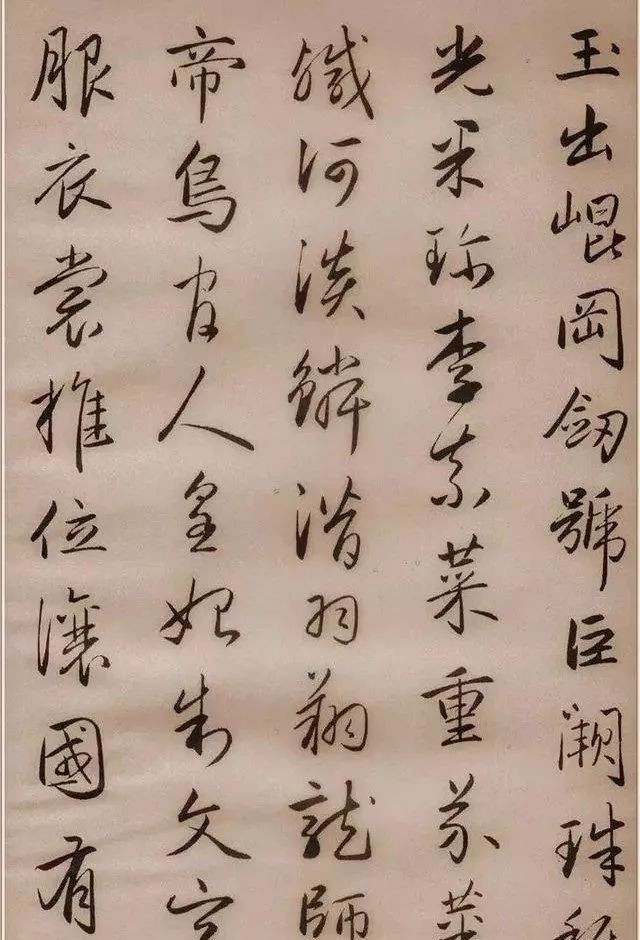 玉出崐岡劒號巨闕珠
光果珍李柰菜重芥
鹹河淡鱗潛羽翔龍師
帝鳥官人皇始制文字
服衣裳推位讓國有